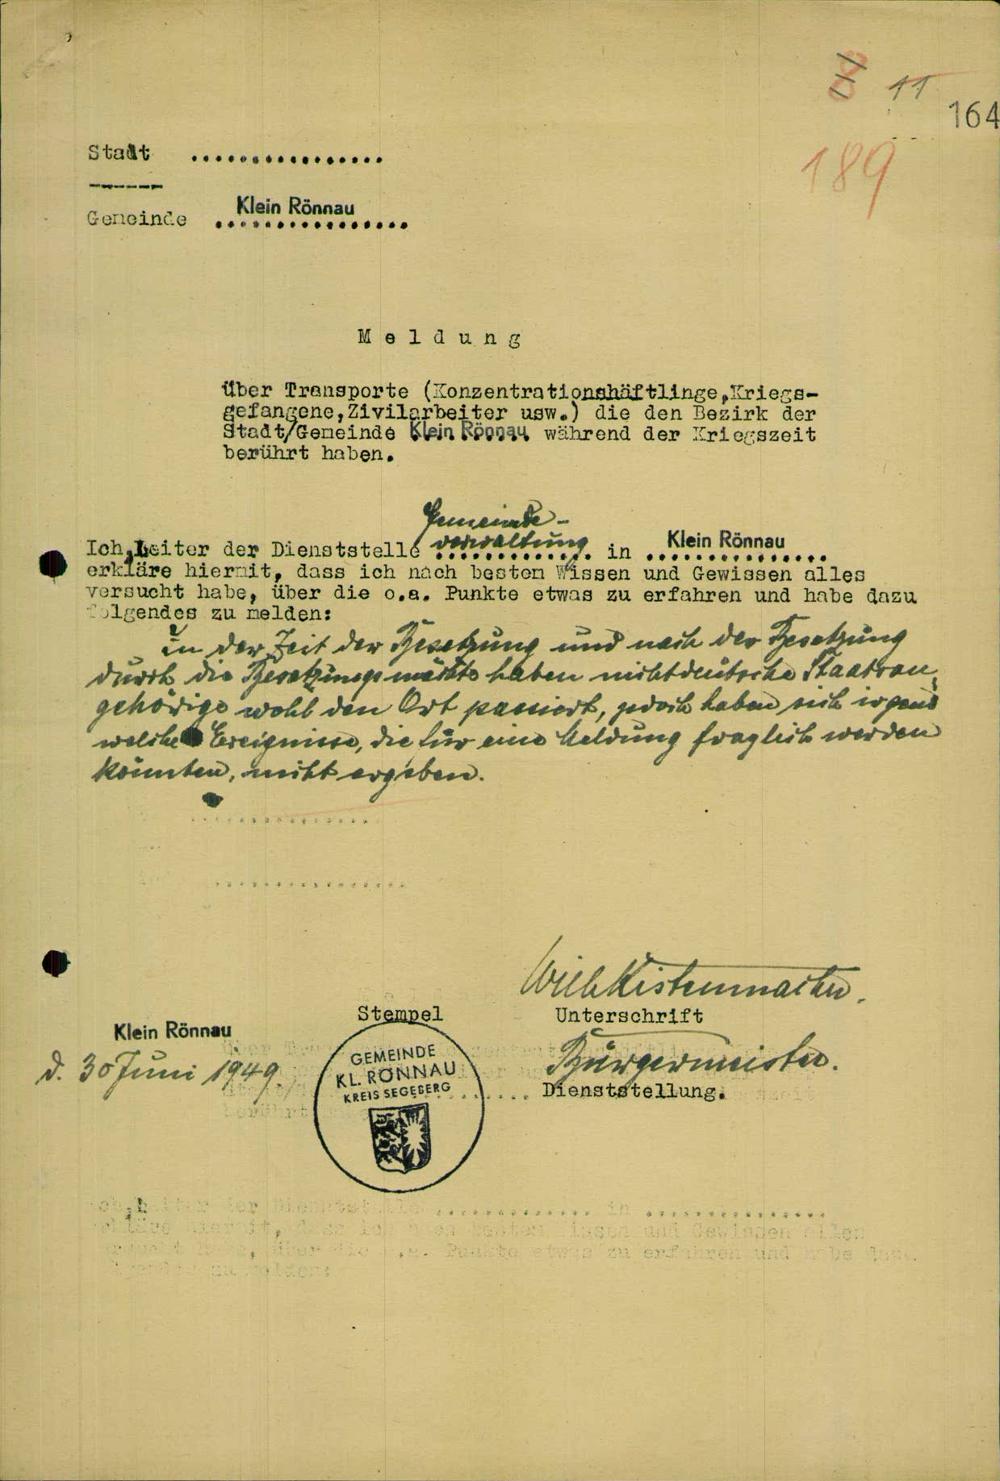 8 11
164
189
Stadt ................
Gemeinde Klein Rönnau
Meldung
über Transporte (Konzentrationshäftlinge,Kriegs-
gefangene,Zivilarbeiter usw.) die den Bezirk der
Stadt/Gemeinde Klein Rönnau während der Kriegszeit
berührt haben.
Gemeinde-
Ich,Leiter der Dienststelle verwaltung in Klein Rönnau
erkläre hiermit, dass ich nach bestem Wissen und Gewissen alles
versucht habe, über die o.a. Punkte etwas zu erfahren und habe dazu
folgendes zu melden:
In der Zeit der Besetzung und nach der Besetzung
durch die Besetzungsmächte haben nichtdeutsche Staatsan-
gehörige wohl den Ort passiert, jedoch haben sich irgend
welche Ereignisse, die für eine Meldung fraglich werden
könnten, nicht ergeben.
................
................
Willi Kistenmacher.
Stempel Unterschrift
Klein Rönnau
d. 30 Juni 1949.
Bürgermeister.
Dienststellung.
GEMEINDE
KL. RÖNNAU
KREIS SEGEBERG